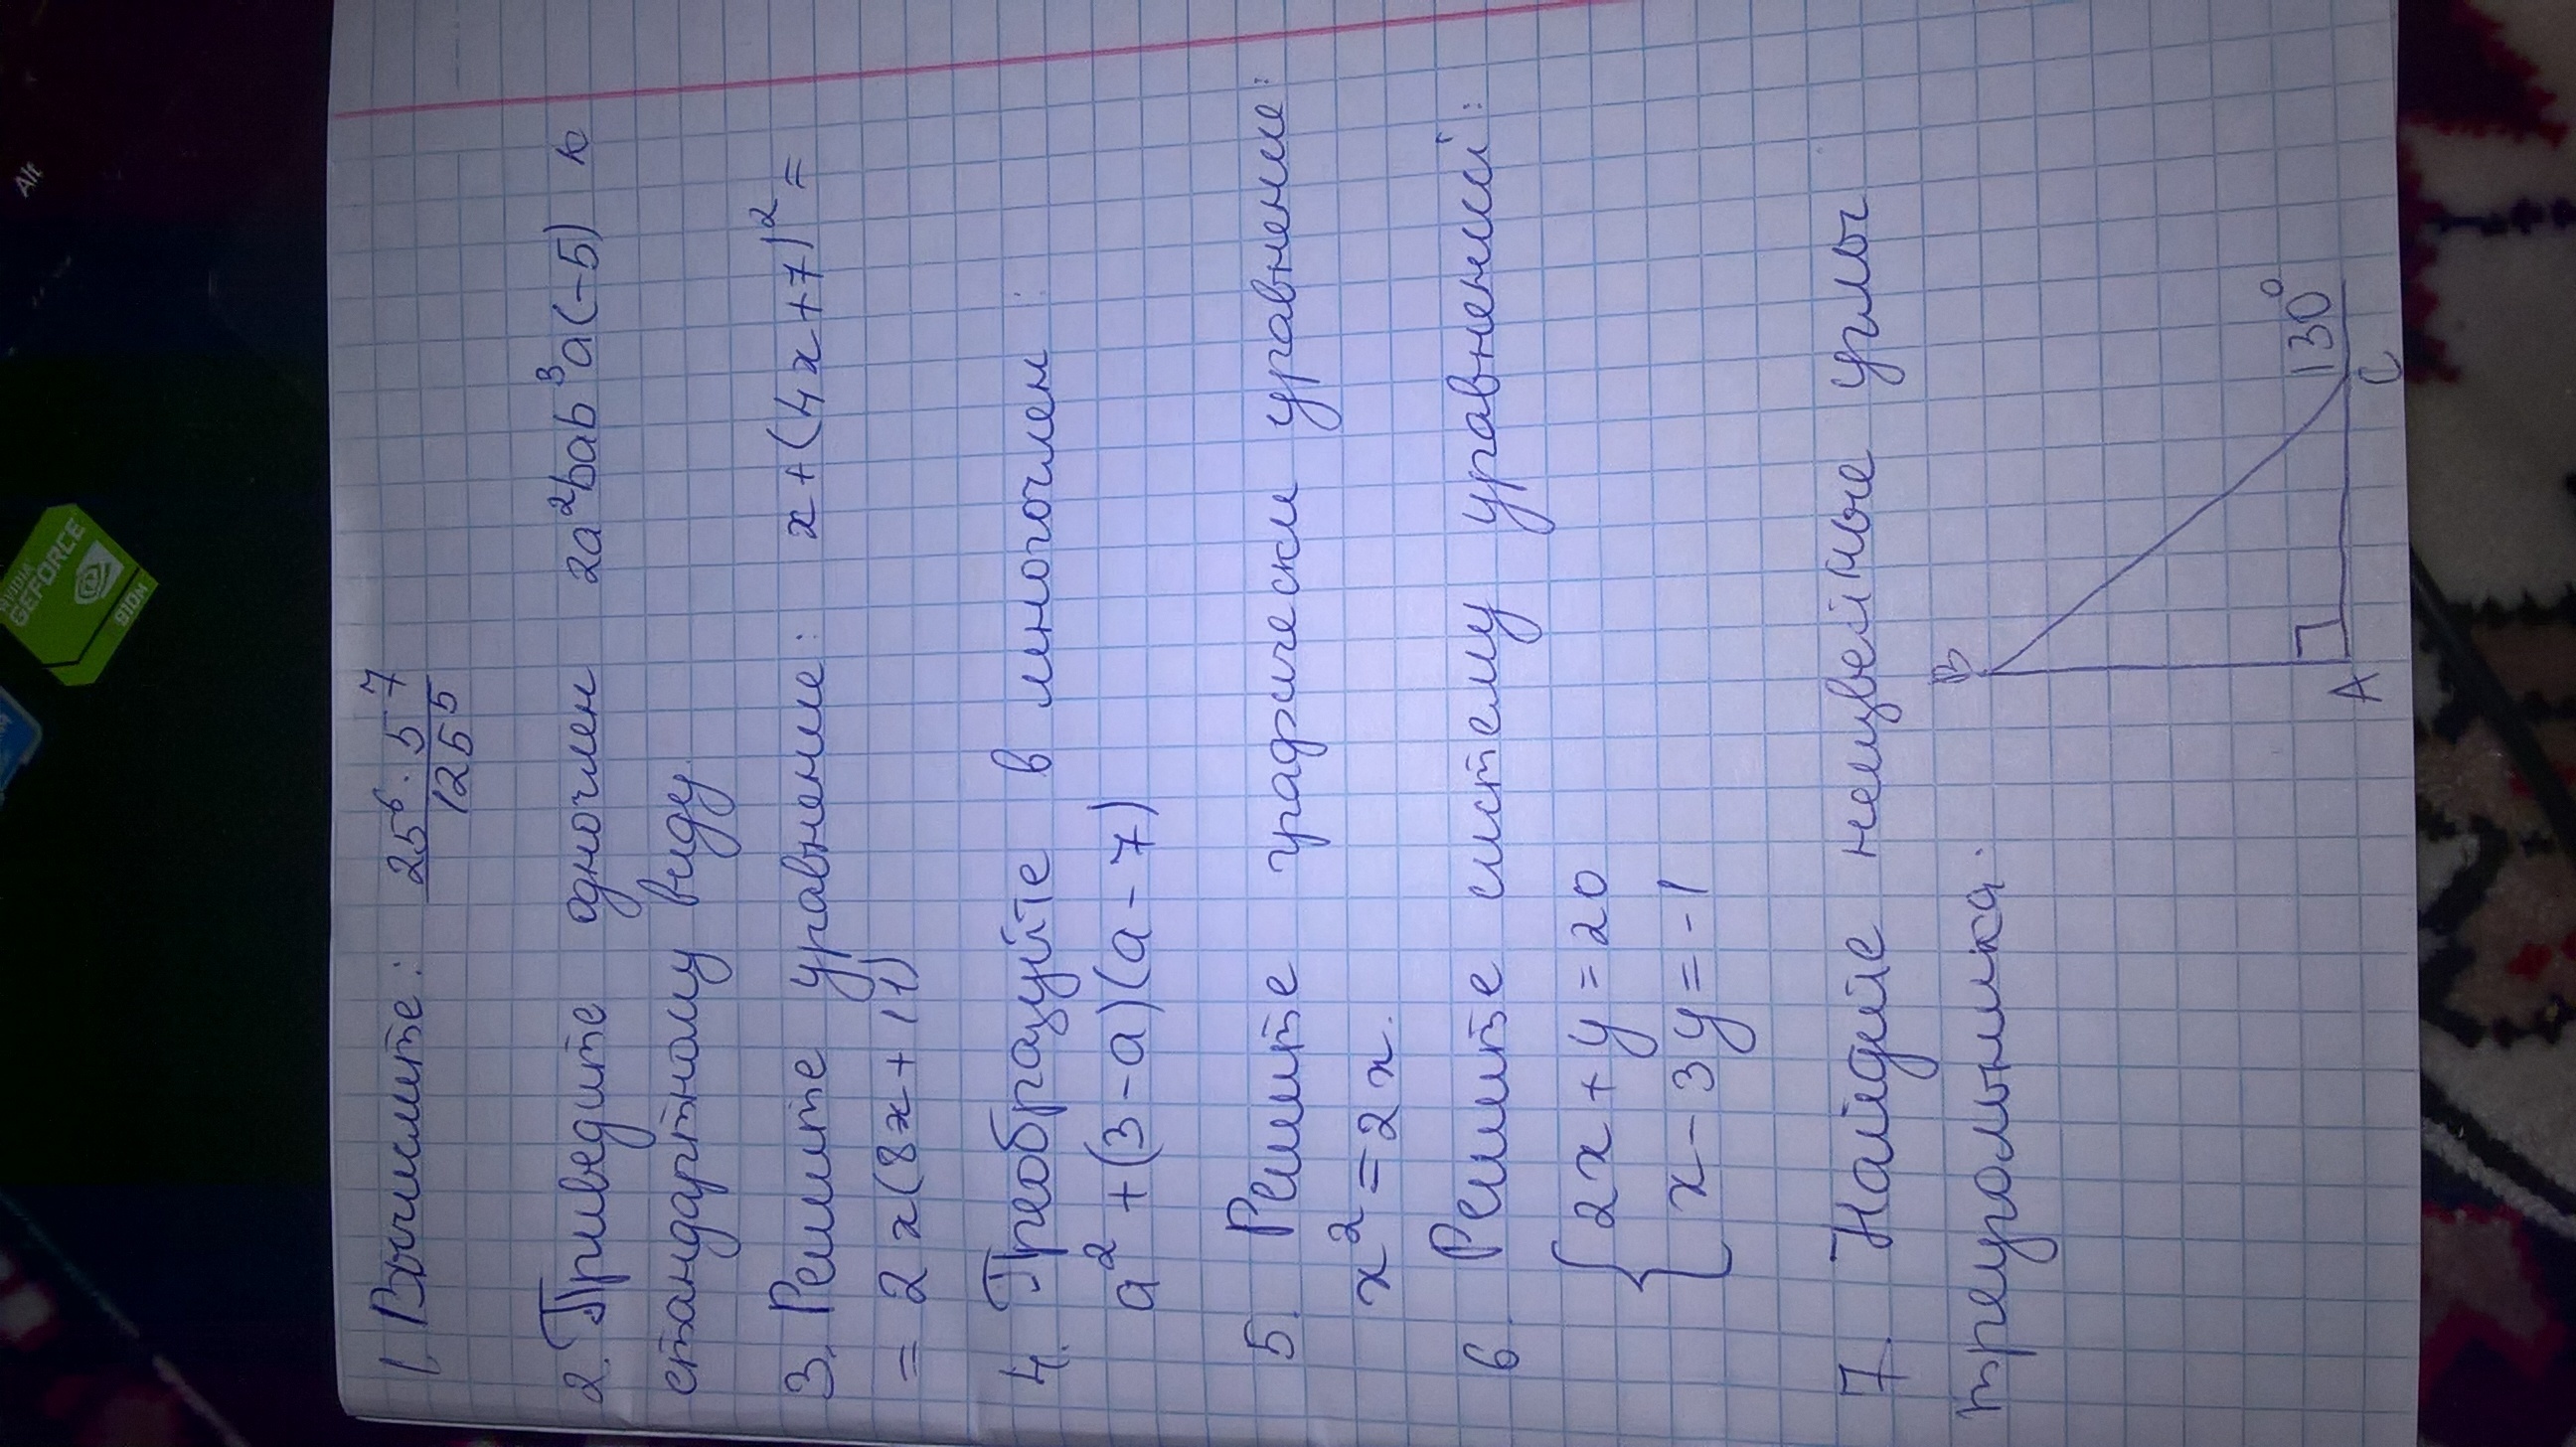 1. Вычислите: 25⁶ · 5⁷ / 125⁵
2. Приведите одночлен 2a²bab³a(-5) к
стандартному виду
3. Решите уравнение: x+(4x+7)²=
= 2x(8x+11)
4. Преобразуйте в многочлен:
a²+(3-a)(a-7)
5. Решите графически уравнение:
x²=2x.
6. Решите систему уравнений:
{2x+y=20
x-3y=-1
7. Найдите неизвестные углы
треугольника.
B
130°
A C
Alt
NVIDIA
GEFORCE